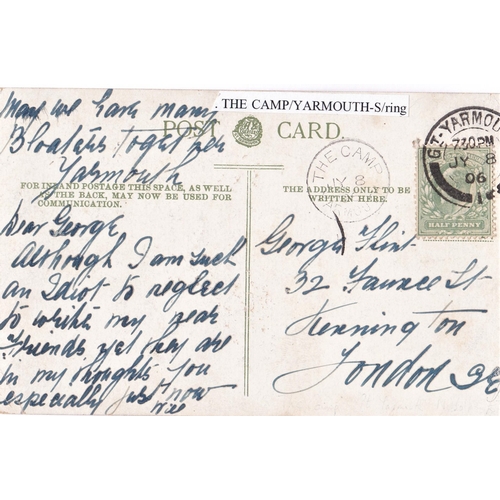 . THE CAMP/YARMOUTH-S/ring
May we have many
Bloaters together
Yarmouth
POST CARD.
FOR INLAND POSTAGE THIS SPACE, AS WELL
AS THE BACK, MAY NOW BE USED FOR
COMMUNICATION.
Dear George,
Although I am such
an Idiot to neglect
to write my near
Friends yet they are
in my thoughts You
especially just now
THE ADDRESS ONLY TO BE
WRITTEN HERE.
THE CAMP
JY 8
GT-YARMOU
7.30PM
JY 8
06
HALF PENNY
George Flint
32 St
Kennington
London SE